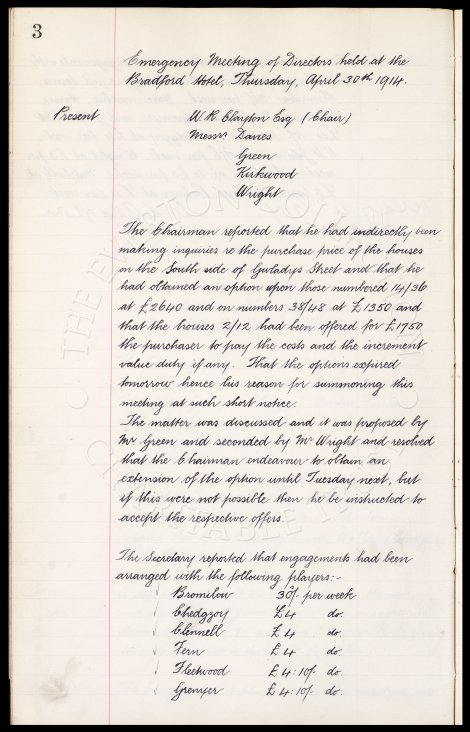 3
Emergency Meeting of Directors held at the
Bradford Hotel, Thursday, April 30th 1914.
Present W. R. Clayton Esq (Chair)
Messrs Davies
Green
Kirkwood
Wright
The Chairman reported that he had indirectly been
making inquiries re the purchase price of the houses
on the South side of Gwladys Street and that he
had obtained an option upon those numbered 14/36
at £2640 and on numbers 38/48 at £1350 and
that the houses 2/12 had been offered for £1750
the purchaser to pay the costs and the increment
value duty if any. That the options expired
tomorrow hence his reason for summoning this
meeting at such short notice.
The matter was discussed and it was proposed by
Mr Green and seconded by Mr Wright and resolved
that the Chairman endeavour to obtain an
extension of the option until Tuesday next, but
if this were not possible then he be instructed to
accept the respective offers.
The Secretary reported that engagements had been
arranged with the following players:-
Bromilow 30/- per week
Chedgzoy £4 do.
Clennell £4 do.
Fern £4 do.
Fleetwood £4:10/- do.
Grenyer £4:10/- do.